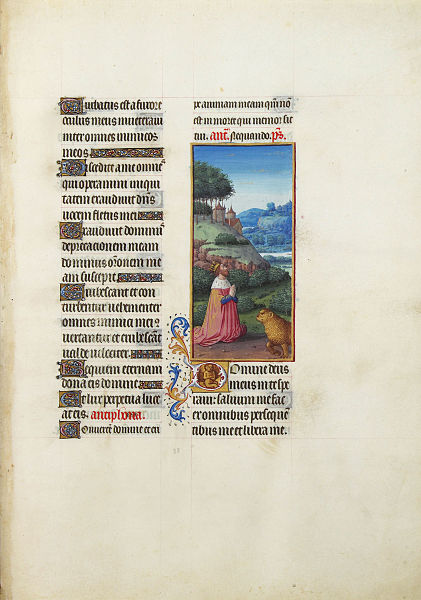 Turbatus est a furore
oculus meus inveteravi
inter omnes inimicos
meos.
Discedite a me omnes
qui operamini iniqui
tatem exaudivit dns
vocem fletus mei
Exaudivit dominus
deprecationem meam
dominus orōnem me
am suscepit
Erubescant et con
turbentur vehementer
omnes inimici mei
vertantur et erubescāt
valde velociter.
Requiem eternam
dona eis domine
Et lux perpetua luce
at eis. antiphona.
Convertere domine et eri
pe animam meam qm̄ nō
est in morte qui memor sit
tui. ant. Nequando. ps.
Domine deus
meus in te spe
ravi: salvum me fac
ex omnibus persequē
tibus me et libera me.